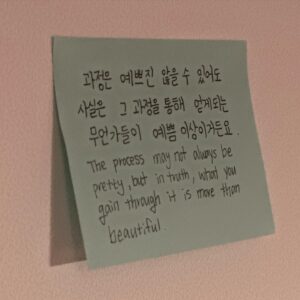 과정은 예쁘진 않을 수 있어도
사실은 그 과정을 통해 얻게되는
무언가들이 예쁨 이상이거든요.
The process may not always be
pretty, but in truth, what you
gain through it is more than
beautiful.